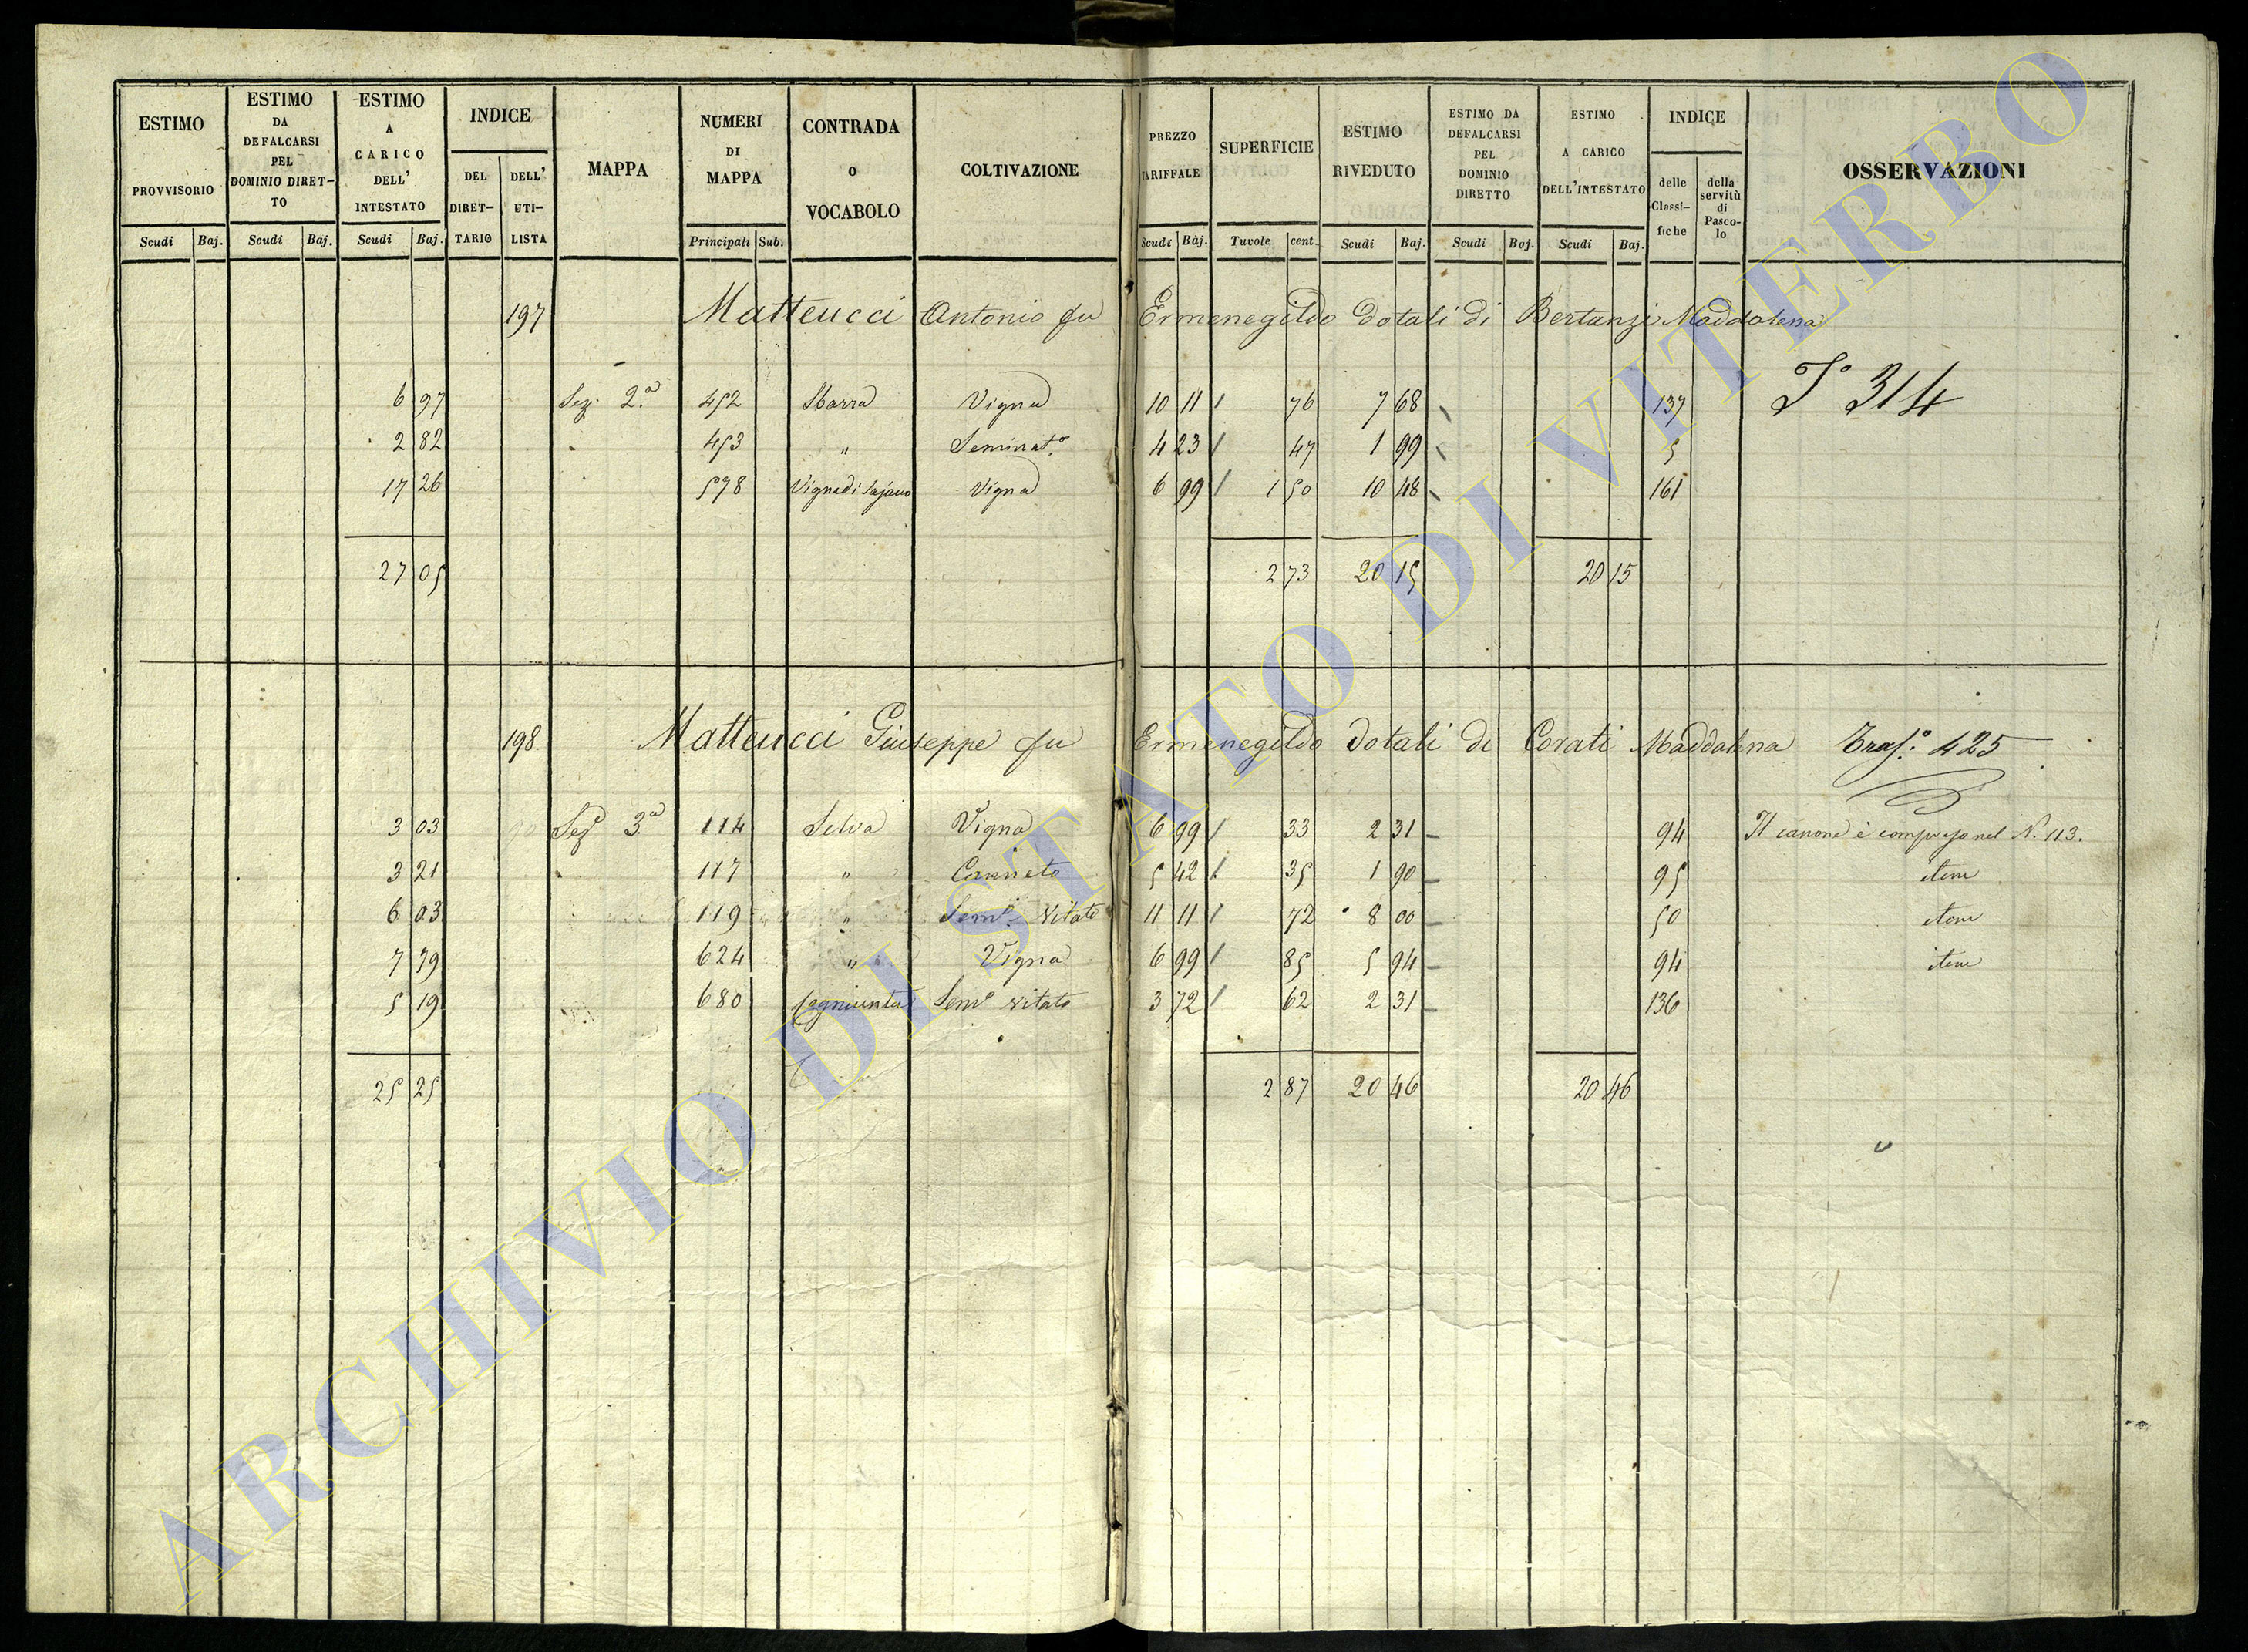 ESTIMO PROVVISORIO | ESTIMO DA DEFALCARSI PEL DOMINIO DIRET-TO | ESTIMO A CARICO DELL' INTESTATO | INDICE DEL DIRET-TARIO | DELL' UTI-LISTA | MAPPA | NUMERI DI MAPPA | CONTRADA O VOCABOLO | COLTIVAZIONE | PREZZO TARIFFALE | SUPERFICIE | ESTIMO RIVEDUTO | ESTIMO DA DEFALCARSI PEL DOMINIO DIRETTO | ESTIMO A CARICO DELL'INTESTATO | INDICE delle Classi-fiche | della servitù di Pasco-lo | OSSERVAZIONI
Scudi | Baj. | Scudi | Baj. | Scudi | Baj. | Principali | Sub. | Scudi | Baj. | Tavole | cent. | Scudi | Baj. | Scudi | Baj. | Scudi | Baj.
197 Matteucci Antonio fu Ermenegildo dotali di Bertanzi Maddalena
6 97 Sez. 2.ª 452 Sbarra Vigna 10 11 / 76 7 68 137 314
2 82 453 " Seminat.º 4 23 / 47 1 99 5
17 26 578 Vigna di Sajano Vigna 6 99 / 1 50 10 48 161
27 05 2 73 20 15 20 15
198 Matteucci Giuseppe fu Ermenegildo dotali di Corati Maddalena Trasf.º 425
3 03 Sezº 3ª 114 Selva Vigna 6 99 / 33 2 31 94 Il canone è compreso nel N. 113.
3 21 117 " Canneto 5 42 / 35 1 90 95 item
6 03 119 " Semº Vitato 11 11 / 72 8 00 50 item
7 79 624 " Vigna 6 99 / 85 5 94 94 item
5 19 680 Semº vitato 3 72 / 62 2 31 136
25 25 2 87 20 46 20 46
ARCHIVIO DI STATO DI VITERBO